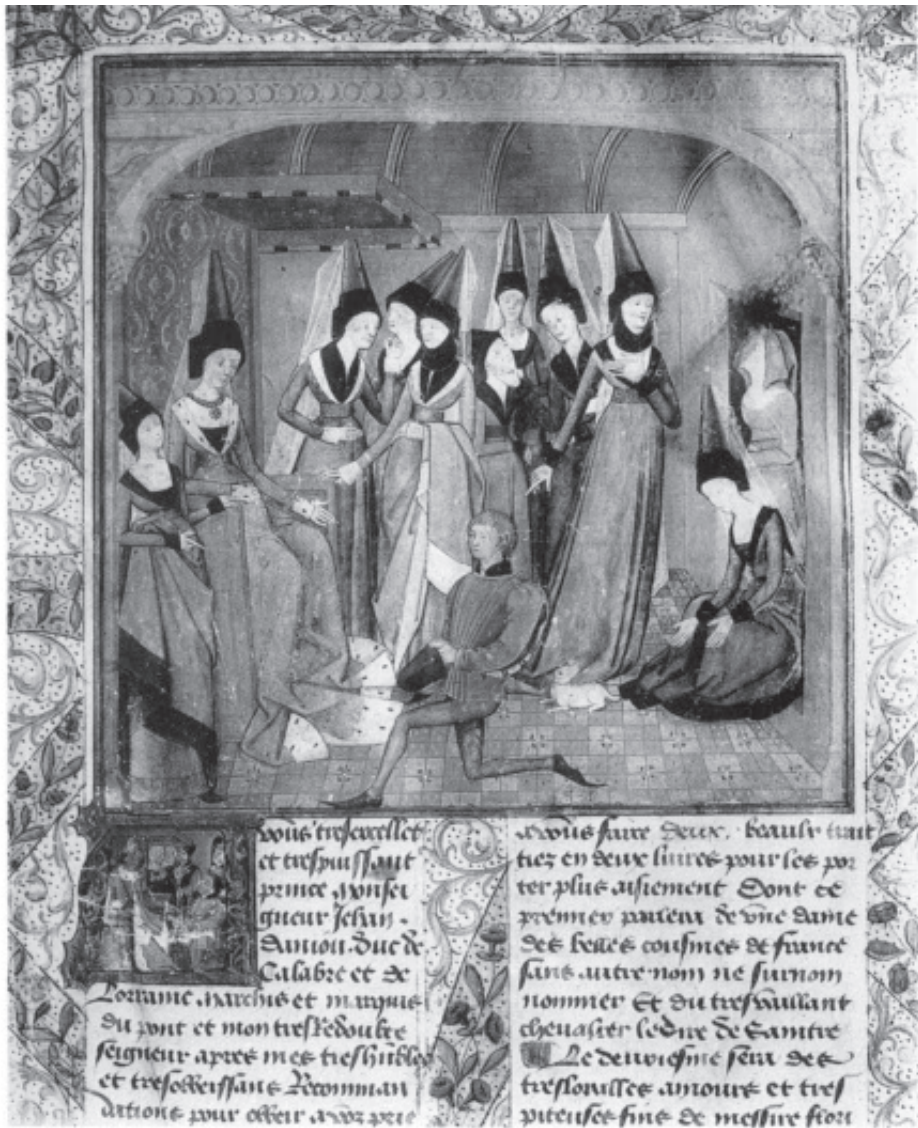 vous tresexcellet
et trespuissant
prince monsei
gneur Jehan
Daniou Duc de
Calabre et de
Lorraine marchis et marquis
du pont et mon tresredoubte
seigneur apres mes treshubles
et tresobeissans Recomman
dations pour obeir a voz prie
a vous faire deux beaulx trait
tiez en deux liures pour les por
ter plus aisiement Dont ce
premier parlera de vne dame
des belles cousines de france
sans autre nom ne surnom
nommer Et du tresvaillant
cheualier le Sire de Saintre
Le deuxiesme sera des
tresloialles amours et tres
piteuses fins de messire flori